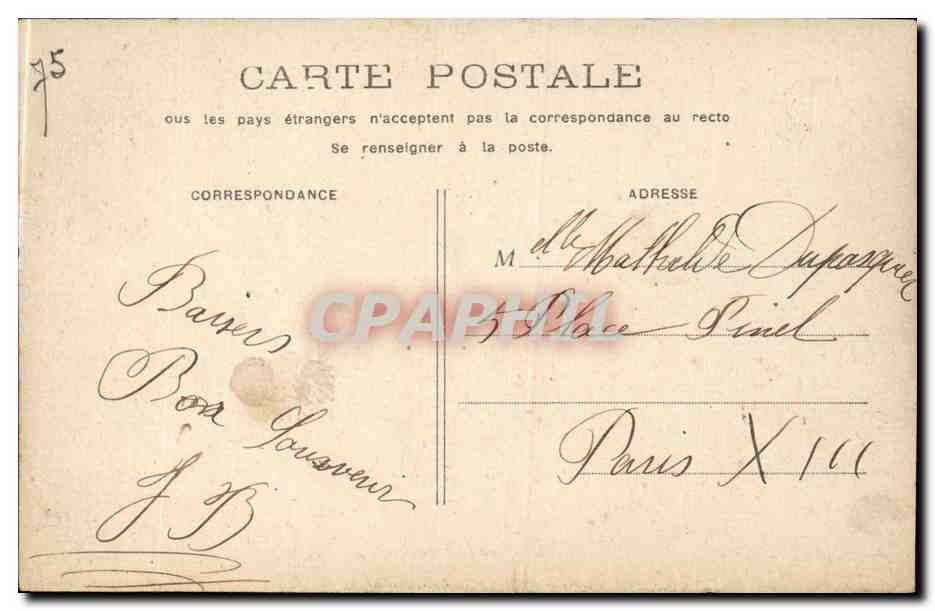 75
CARTE POSTALE
ous les pays étrangers n'acceptent pas la correspondance au recto
Se renseigner à la poste.
CORRESPONDANCE
Baisers
Bon Souvenir
JB
ADRESSE
Melle Mathilde Dupasquier
5 Place Pinel
Paris XIII
CPAPHIL